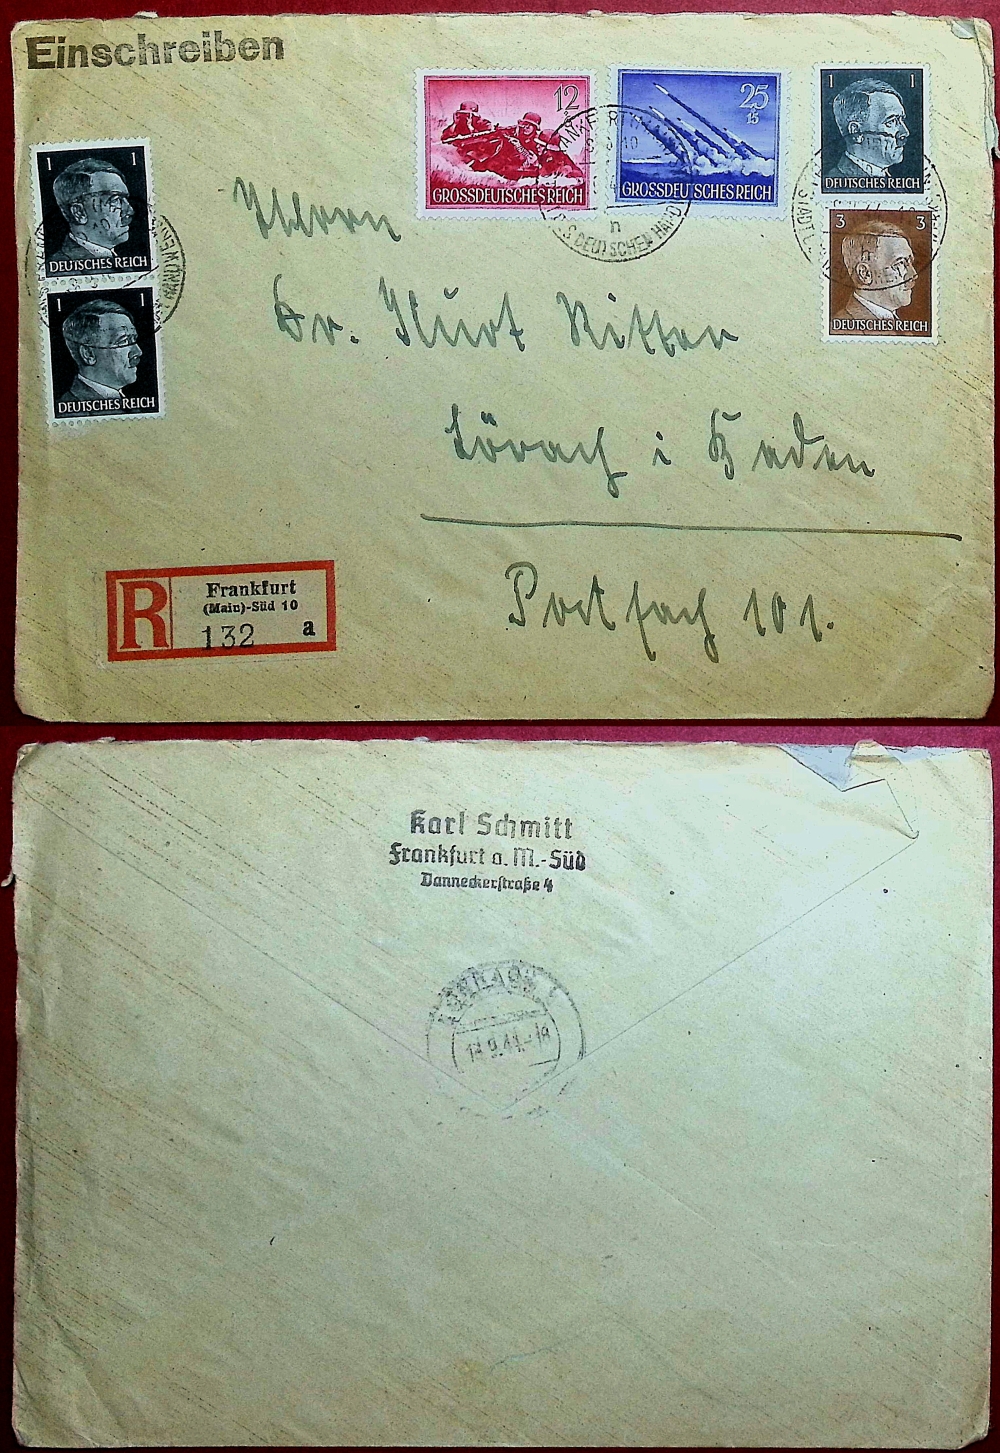 Einschreiben
12
GROSSDEUTSCHES REICH
25
15
GROSSDEUTSCHES REICH
1 1
DEUTSCHES REICH
3 3
DEUTSCHES REICH
1 1
DEUTSCHES REICH
1 1
DEUTSCHES REICH
Herrn
Dr. Kurt Ritter
Lörach i Baden
Postfach 101.
R
Frankfurt
(Main)-Süd 10
132 a
DEUTSCHEN
Karl Schmitt
Frankfurt a. M.-Süd
Danneckerstraße 4